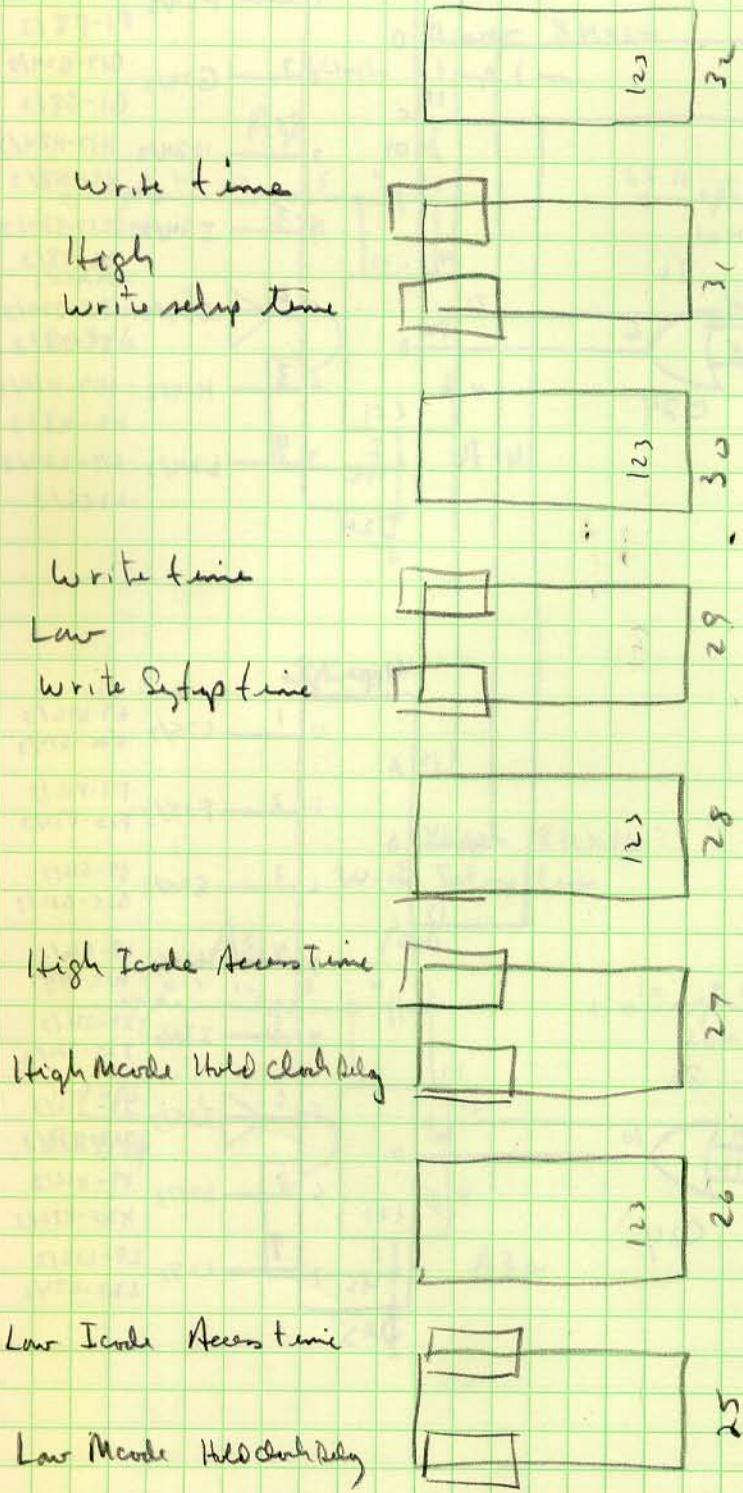 123 32
Write time
High
31
Write setup time
123 30
Write time
Low
29
Write Sytup time
123 28
High Icode Access Time
27
High Mcode Hold clock Delay
123 26
Low Icode Access time
25
Low Mcode Hold clock Delay